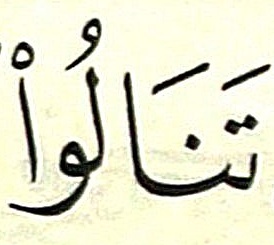 تَنَالُواْ